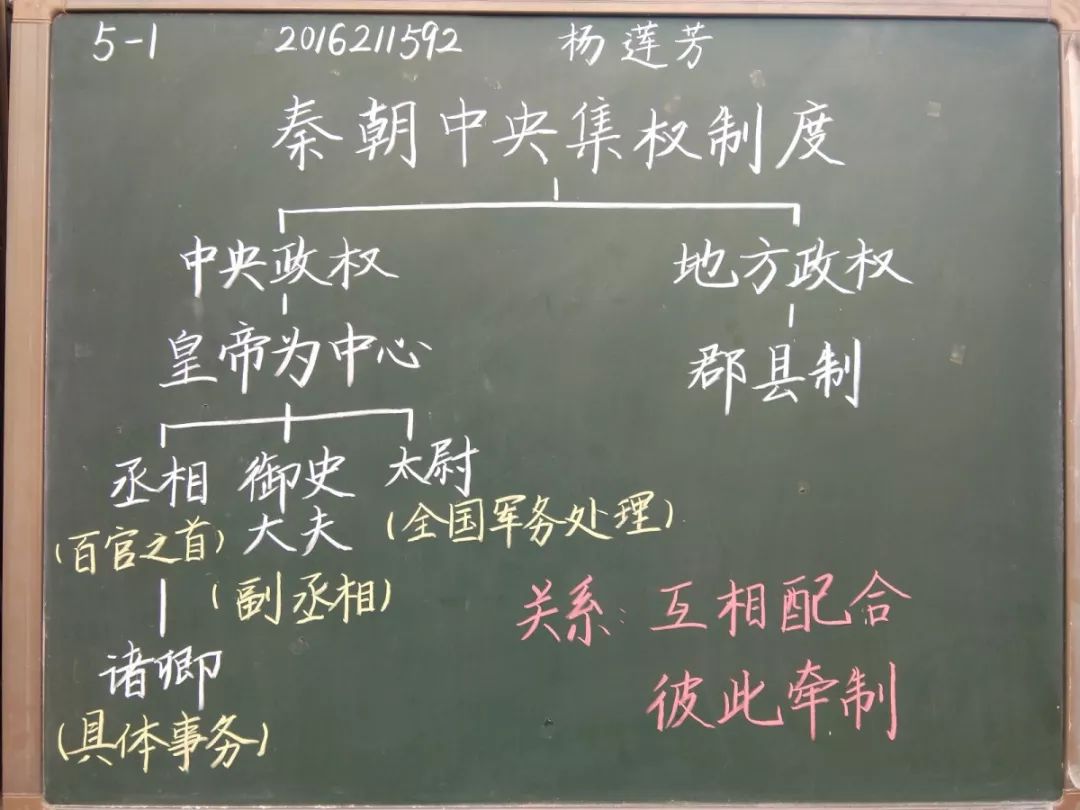 5-1 2016211592 杨莲芳
秦朝中央集权制度
中央政权 地方政权
皇帝为中心 郡县制
丞相 御史 太尉
(百官之首) 大夫 (全国军务处理)
(副丞相)
关系: 互相配合
诸卿 彼此牵制
(具体事务)